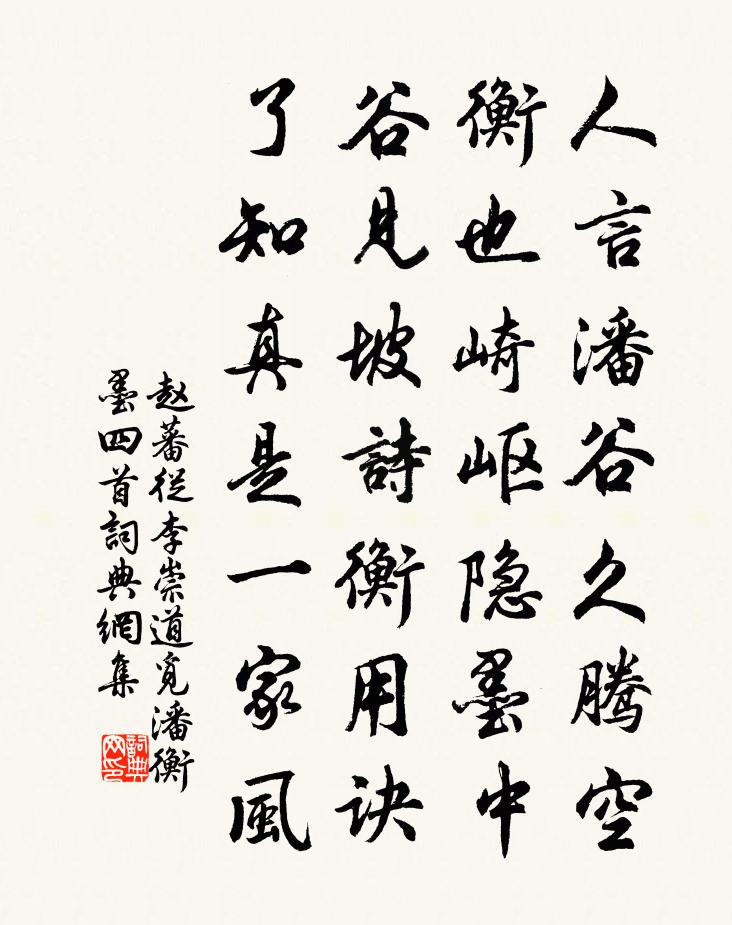 人言潘谷久腾空
衡也崎岖隐墨中
谷見坡詩衡用诀
了知真是一家風
赵蕃從李崇道覓潘衡
墨四首詞典網集
詞典
网印